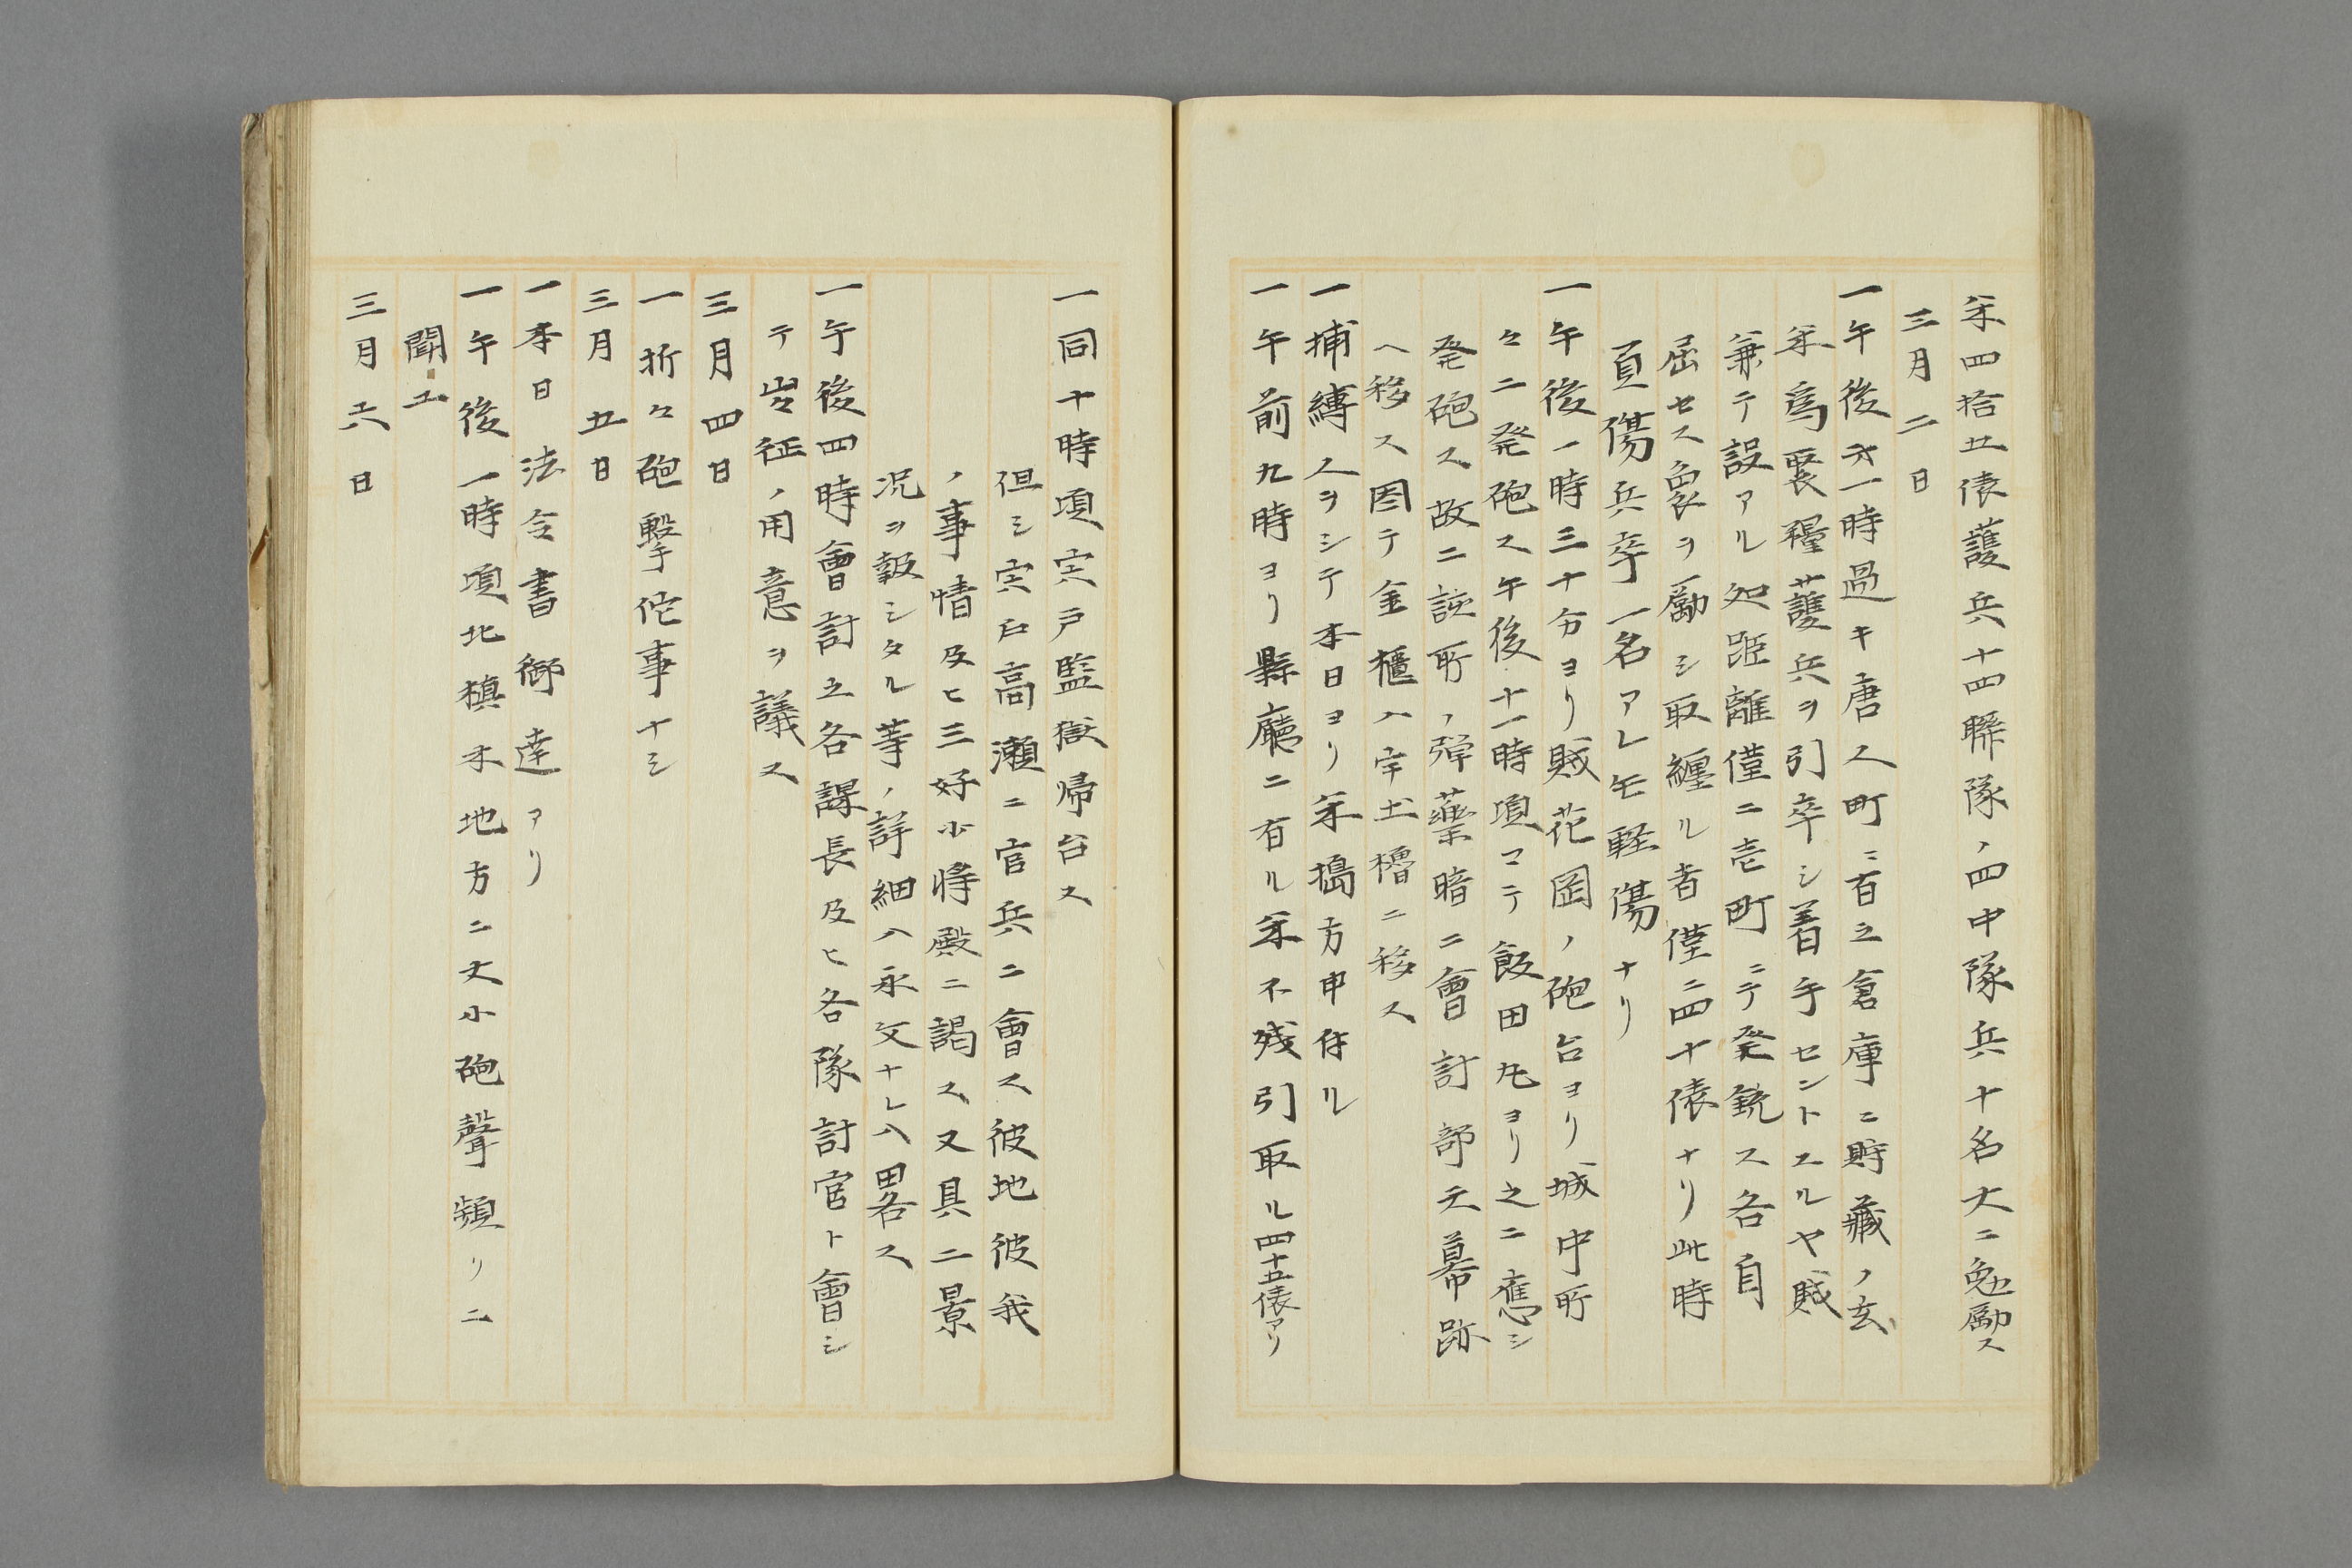 米四拾五俵護兵十四聯隊ノ四中隊兵十名大ニ勉勵ス
三月二日
一午後第一時過キ唐人町ニ有之倉庫ニ貯藏ノ玄
米為褁糧護兵ヲ引卒シ着手セントスルヤ賊
兼テ設アル処距離僅ニ壱町ニテ発銃ス各自
屈セス衆ヲ勵シ取纏ル者僅ニ四十俵ナリ此時
負傷兵卒一名アレ𪜈軽傷ナリ
一午後一時三十分ヨリ賊花岡ノ砲台ヨリ城中所
々ニ発砲ス午後十一時頃マテ飯田丸ヨリ之ニ應シ
発砲ス故ニ該所ノ弾藥暗ニ會計部天幕跡
ヘ移ス因テ金櫃ハ宇土櫓ニ移ス
一捕縛人ヲシテ本日ヨリ米搗方申付ル
一午前九時ヨリ縣廳ニ有ル米不残引取ル四十五俵アリ
一同十時頃宍戸監獄帰台ス
但シ宍戸高瀬ニ官兵ニ會ス彼地彼我
ノ事情及ヒ三好少将殿ニ謁ス又具ニ景
況ヲ報シタル等ノ詳細ハ永文ナレハ畧ス
一午後四時會計之各課長及ヒ各隊計官ト會シ
テ出征ノ用意ヲ議ス
三月四日
一折々砲撃他事ナシ
三月五日
一本日法令書御達アリ
一午後一時頃北植木地方ニ大小砲聲頻リニ
聞ユ
三月六日